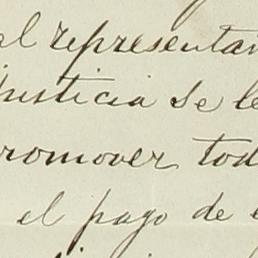 al representan
Justicia se le
romover tod
el pago de e